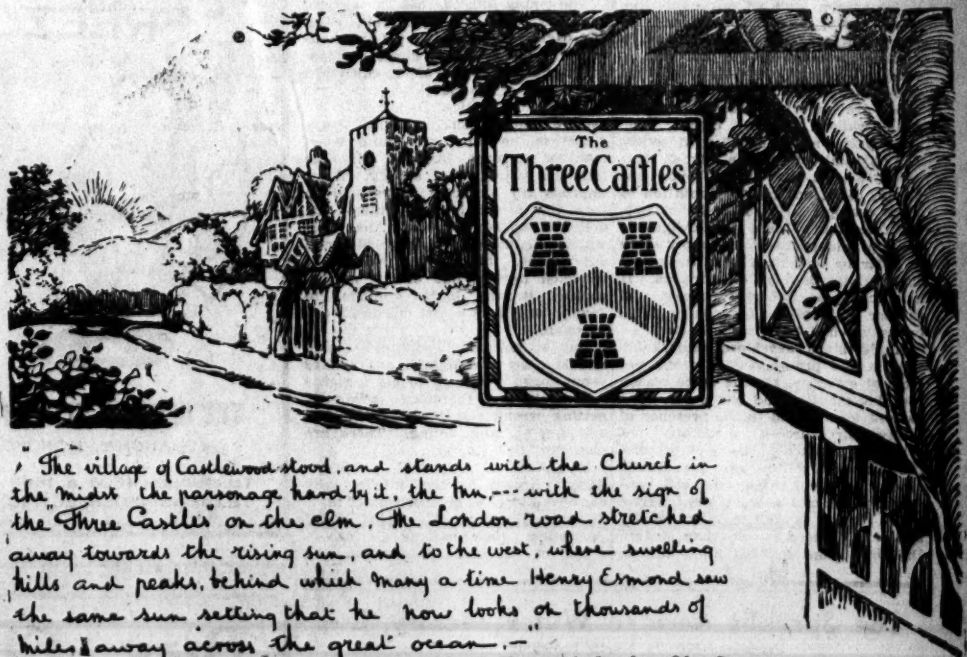 The
Three Caſtles
"The village of Castlewood stood, and stands with the Church in
the midst the parsonage hard by it, the Inn,--- with the sign of
the "Three Castles" on the elm. The London road stretched
away towards the rising sun, and to the west, where swelling
hills and peaks, behind which many a time Henry Esmond saw
the same sun setting that he now looks on thousands of
miles away across the great ocean.—"